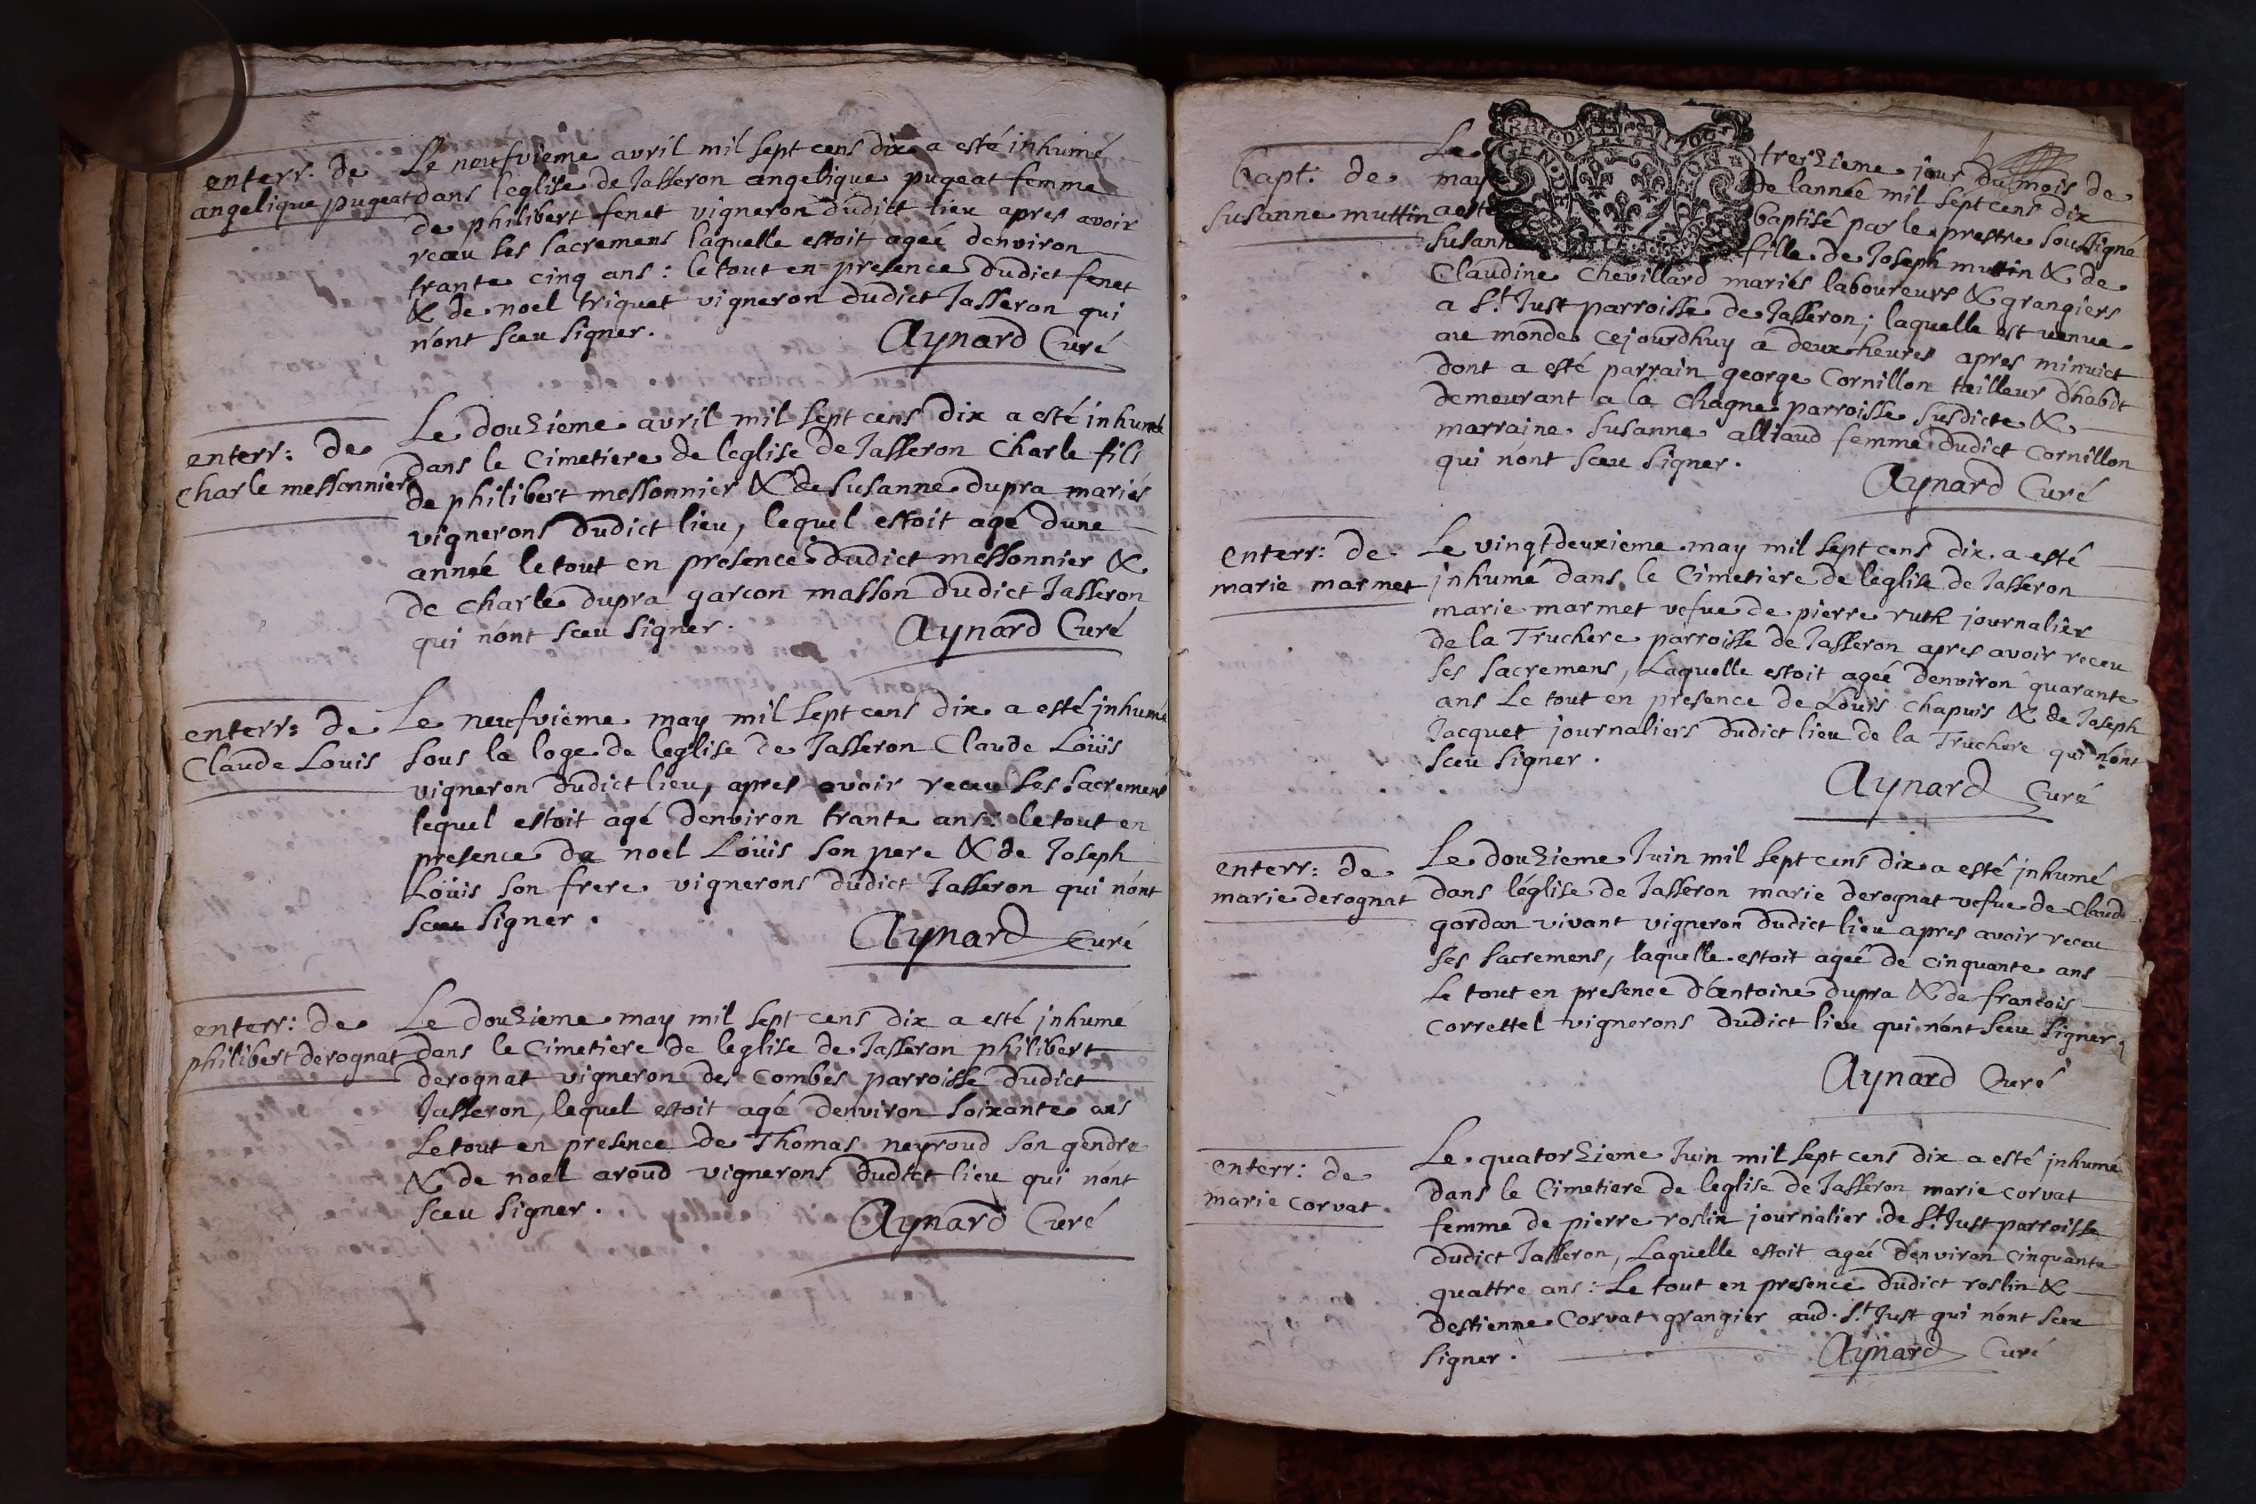 enterr. de
angelique pugeat
Le neufvieme avril mil sept cens dix a esté inhumé
dans leglise de Jasseron angelique pugeat femme
de philibert fenet vigneron dudict lieu apres avoir
receu ses sacremens laquelle estoit ageé denviron
trante cinq ans : le tout en presence dudict fenet
& de noel triquet vigneron dudict Jasseron qui
n'ont sceu signer.
Aynard Curé
enterr: de
Charle messonnier
Le douzieme avril mil sept cens dix a esté inhumé
dans le Cimetiere de leglise de Jasseron Charle fili
de philibert messonnier & de Susanne dupra mariés
vignerons dudict lieu, lequel estoit agé dune
année le tout en presence dudict messonnier &
de Charle dupra garcon masson dudict Jasseron
qui n'ont sceu signer.
Aynard Curé
enterr: de
Claude Louis
Le neufvieme may mil sept cens dix a esté jnhumé
sous la loge de leglise de Jasseron Claude Loüis
vigneron dudict lieu, apres avoir receu ses sacremens
lequel estoit agé denviron trante ans: le tout en
presence de noel Loüis son pere & de Joseph
Loüis son frere vignerons dudict Jasseron qui n'ont
sceu signer.
Aynard Curé
enterr: de
philibert derognat
Le douzieme may mil sept cens dix a esté jnhumé
dans le Cimetiere de leglise de Jasseron philibert
derognat vigneron des Combes parroisse dudict
Jasseron, lequel estoit agé denviron soixante ans
Le tout en presence de Thomas neyroud son gendre
& de noel aroud vignerons dudict lieu qui n'ont
sceu signer.
Aynard Curé
GEN
Bapt: de
Susanne muttin
Le treszieme jour du mois de
may de lanneé mil sept cens dix
a esté baptisé par le prestre soussigné
Susann fille de Joseph muttin & de
Claudine Chevillard mariés laboureurs & grangiers
a St. Just parroisse de Jasseron; laquelle est venue
au monde cejourdhuy a deux heures apres minuict
dont a esté parrain george Cornillon tailleur d'habit
demeurant a la Chagne parroisse susdicte &
marraine Susanne alliaud femme dudict Cornillon
qui n'ont sceu signer.
Aynard Curé
Enterr: de
marie marmet
Le vingtdeuxieme may mil sept cens dix a esté
jnhumé dans le Cimetiere de leglise de Jasseron
marie marmet vefue de pierre ruth journalier
de la Truchere parroisse de Jasseron apres avoir receu
ses sacremens, Laquelle estoit ageé denviron quarante
ans Le tout en presence de Loüis Chapuis & de Joseph
Jacquet journaliers dudict lieu de la Truchere qui n'ont
sceu signer.
Aynard Curé
enterr: de
marie derognat
Le douzieme Juin mil sept cens dix a esté jnhumé
dans léglise de Jasseron marie derognat vefue de Claude
gordan vivant vigneron dudict lieu apres avoir receu
ses sacremens, laquelle estoit ageé de cinquante ans
Le tout en presence d'Antoine dupra & de francois
Correttel vignerons dudict lieu qui n'ont sceu signer
Aynard Curé
enterr: de
marie corvat.
Le quatorzieme Juin mil sept cens dix a esté jnhumé
dans le Cimetiere de leglise de Jasseron marie corvat
femme de pierre roslin journalier de St. Just parroisse
dudict Jasseron, Laquelle estoit ageé denviron cinquante
quattre ans : Le tout en presence dudict roslin &
destienne Corvat grangier aud. St. Just qui n'ont sceu
signer.
Aynard Curé